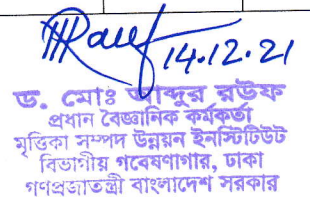 Rauf 14.12.21
ড. মোঃ আব্দুর রউফ
প্রধান বৈজ্ঞানিক কর্মকর্তা
মৃত্তিকা সম্পদ উন্নয়ন ইনস্টিটিউট
বিভাগীয় গবেষণাগার, ঢাকা
গণপ্রজাতন্ত্রী বাংলাদেশ সরকার